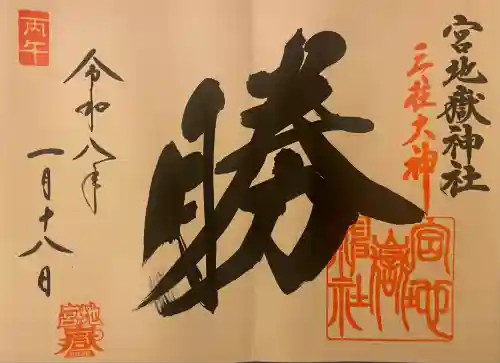 宮地嶽神社
三柱大神
勝
宮地
嶽神
社
丙午
令和八年
一月十八日
宮地
嶽